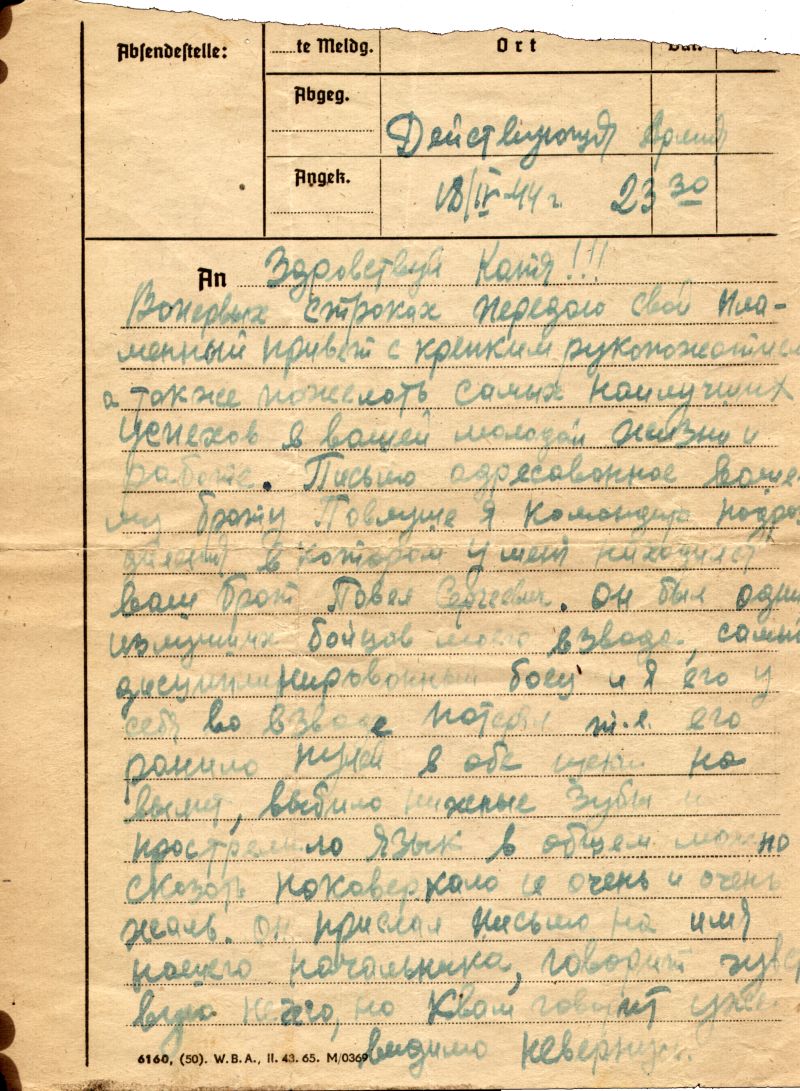 Absendestelle:
te Meldg.
Ort
Abgeg.
Действующая армия
Angek.
18/IV-44 г. 23 30
An Здровствуй Катя!!!
Вопервых строках передаю свой пла-
менный привет с крепким рукопожатием
а также пожелать самых наилучших
успехов в вашей молодой жизни и
работе. Письмо адресованное ваше-
му брату Павлуше я командир подраз
деления в котором у меня находился
ваш брат Павел Сергеевич. Он был один
из лучших бойцов моего взвода, самый
дисциплинированный боец и я его у
себя во взводе потерял т.я. его
ранило пулей в обе щеки на
вылет, выбило нижные зубы и
прострелило язык в общем можно
сказать поковеркало и очень и очень
жаль. он прислал письмо на имя
нашего начальника, говорит чувст
вую нечего, но Квам говорит уже
видимо невернусь.
6160, (50). W.B.A., II. 43. 65. M/0369